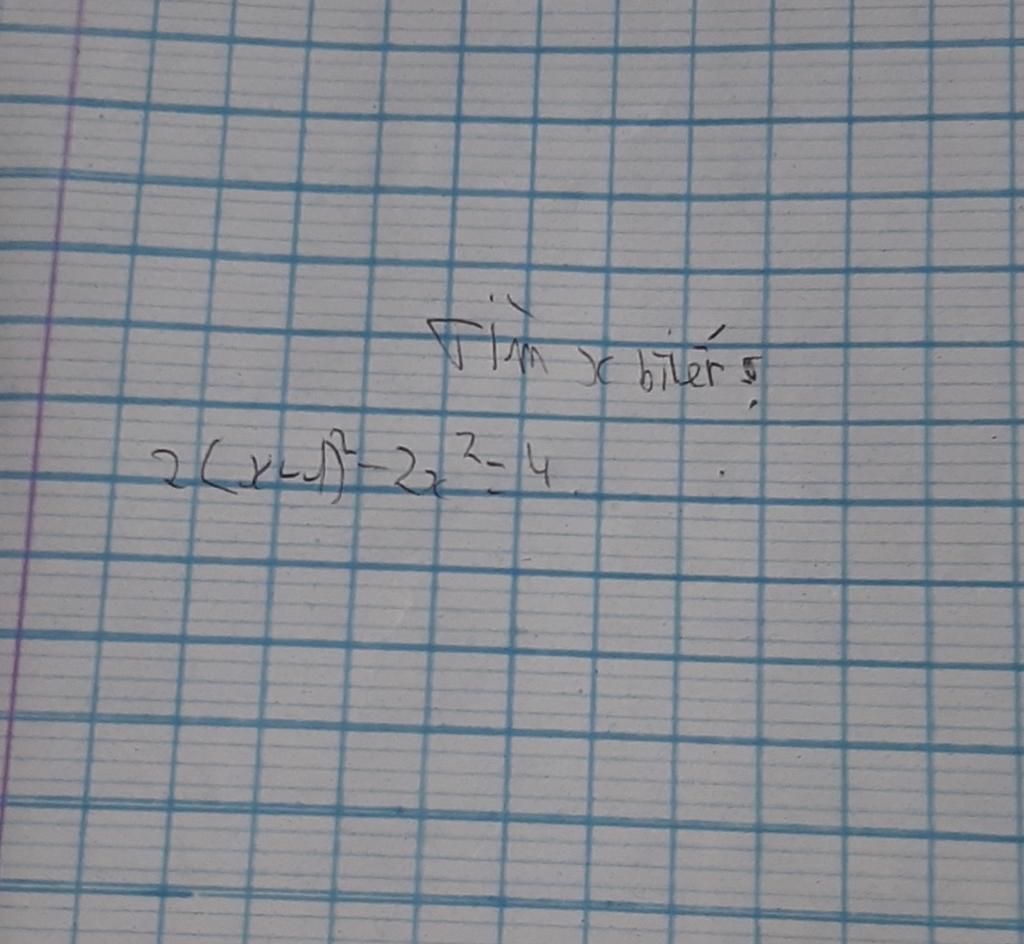 Tìm x biết:
2(x-1)²-2x²=4